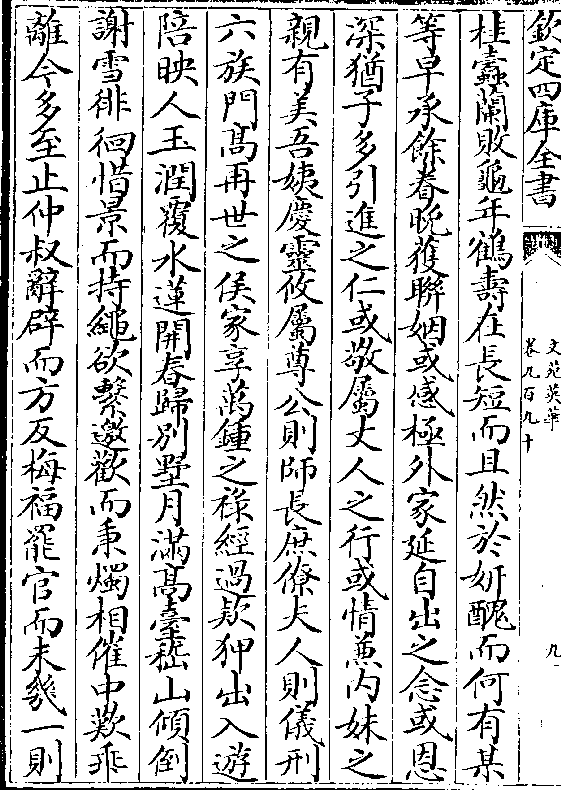 欽定四庫全書
文苑英華
卷九百九十
九
桂蠹蘭敗龜年鶴壽在長短而且然於妍醜而何有某
等早承餘眷晚獲聯姻或感極外家延自出之念或恩
深猶子多引進之仁或敬屬丈人之行或情兼内妹之
親有美吾姨慶靈攸屬尊公則師長庶僚夫人則儀刑
六族門髙再世之侯家享萬鍾之祿經過欵狎出入遊
陪映人玉潤覆水蓮開春歸别墅月滿髙臺嵇山傾倒
謝雪徘徊惜景而持繩欲繫邀歡而秉燭相催中歎乖
離今多至止仲叔辭辟而方反梅福罷官而未幾一則